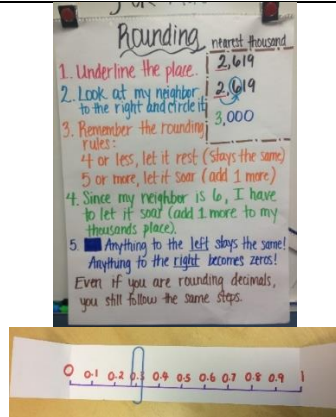 Rounding
nearest thousand
2,619
2,619
3,000
1. Underline the place.
2. Look at my neighbor
to the right and circle it
3. Remember the rounding
rules:
4 or less, let it rest (stays the same)
5 or more, let it soar (add 1 more)
4. Since my neighbor is 6, I have
to let it soar (add 1 more to my
thousands place).
5. Anything to the left stays the same!
Anything to the right becomes zeros!
Even if you are rounding decimals,
you still follow the same steps.
0 0.1 0.2 0.3 0.4 0.5 0.6 0.7 0.8 0.9 1